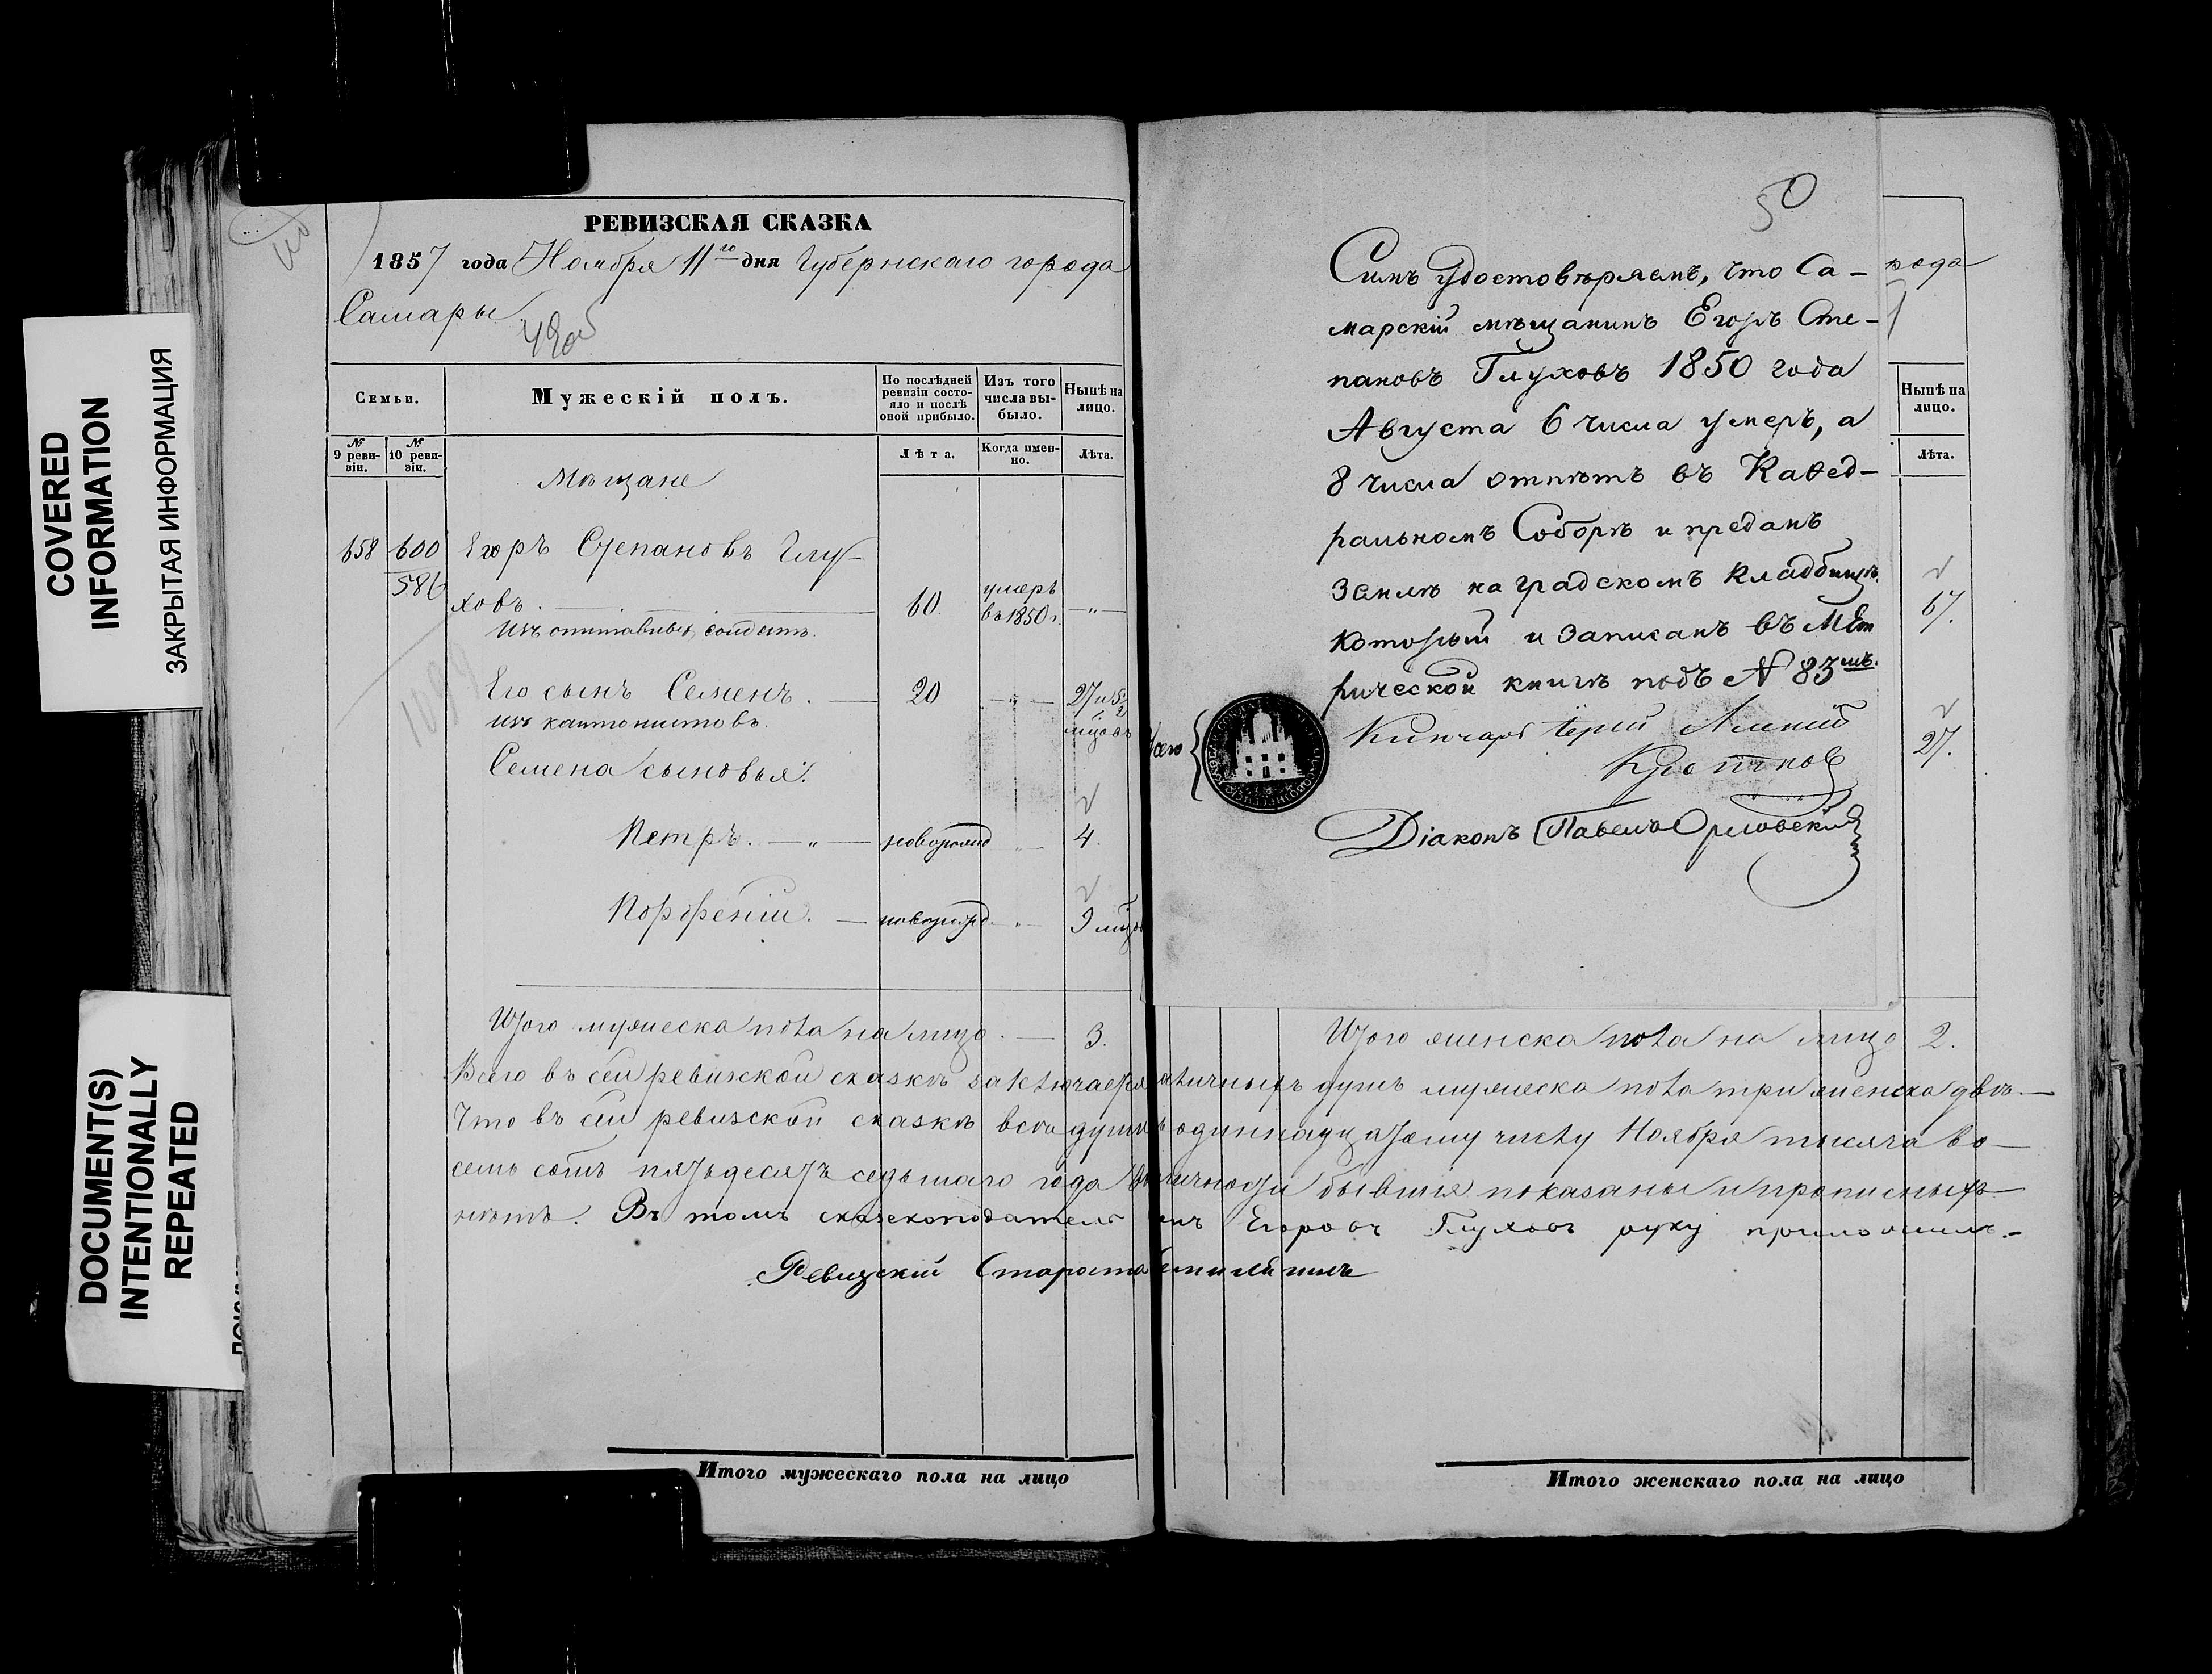 COVERED
INFORMATION
ЗАКРЫТАЯ ИНФОРМАЦИЯ
DOCUMENT(S)
INTENTIONALLY
REPEATED
РЕВИЗСКАЯ СКАЗКА
1857 года Ноября 11го дня Губернскаго города
Самары
49об
Семьи.
Мужескій полъ.
По послѣдней ревизіи состояло и послѣ оной прибыло.
Изъ того числа выбыло.
Нынѣ на лицо.
№ 9 ревизіи.
№ 10 ревизіи.
Лѣта.
Когда именно.
Лѣта.
Мѣщане
658 600 Егоръ Степановъ Глу-
586
ховъ. 60. умеръ въ 1850 г. — „ —
изъ отставныхъ солдатъ.
Его сынъ Семенъ. — 20 — „ — 27
изъ кантонистовъ.
Семена сыновья:
Петръ. — „ — новорожд 4.
Порфеній. — новорожд. 9
Итого мужеска пола на лицо. — 3.
50
Симъ удостовѣряемъ, что Са-
марскій мѣщанинъ Егоръ Сте-
пановъ Глуховъ 1850 года
Августа 6 числа умеръ, а
8 числа отпѣтъ въ Кафед-
ральномъ Соборѣ и преданъ
землѣ на градскомъ кладбищѣ.
который и записанъ въ Мет
рической книгѣ подъ № 83мъ.
Ключарь Іерей
Діаконъ Павелъ Орловскій
рода
Нынѣ на лицо.
Лѣта.
67.
27.
Итого женска пола на лицо 2.
Всего въ сей ревизской сказкѣ заключается наличныхъ душъ мужеска пола три женска двѣ. —
Что въ сей ревизской сказкѣ всѣ души къ одиннадцатому числу Ноября тысяча во-
семь сотъ пятьдесятъ седьмаго года въ наличности бывшія показаны и прописныхъ
нѣтъ. Въ томъ сказкоподатель Егоровъ Глуховъ руку приложилъ. —
Ревизскій Староста
Итого мужескаго пола на лицо
Итого женскаго пола на лицо